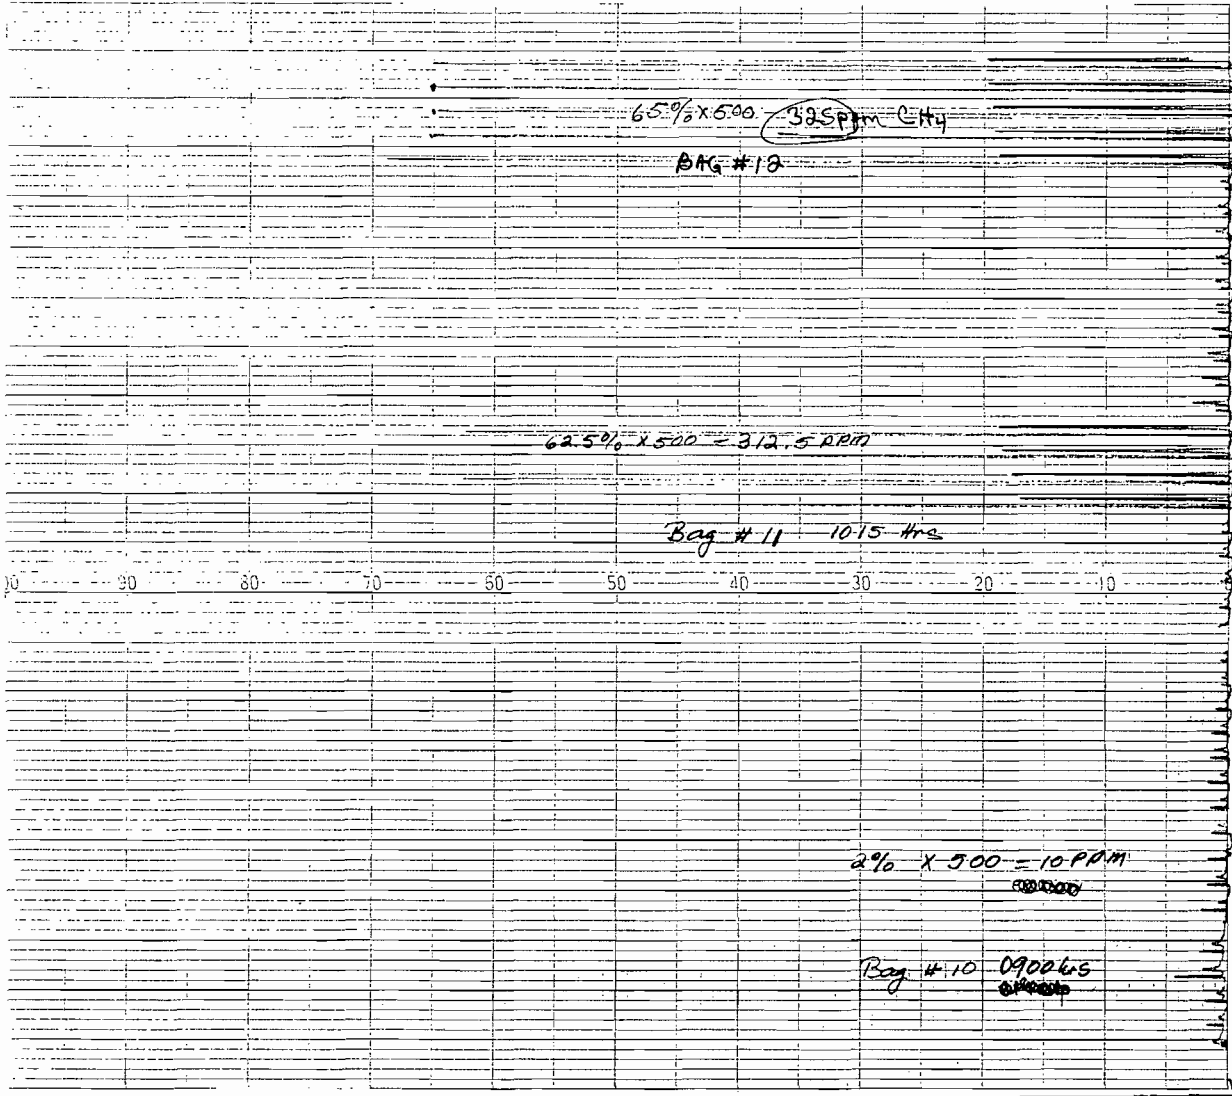 65% x 500 - 325ppm CH4
BAG #12
62.5% x 500 = 312.5 PPM
Bag # 11 1015 Hrs
90 80 70 60 50 40 30 20 10
2% X 500 = 10 PPM
Bag # 10 0900 hrs